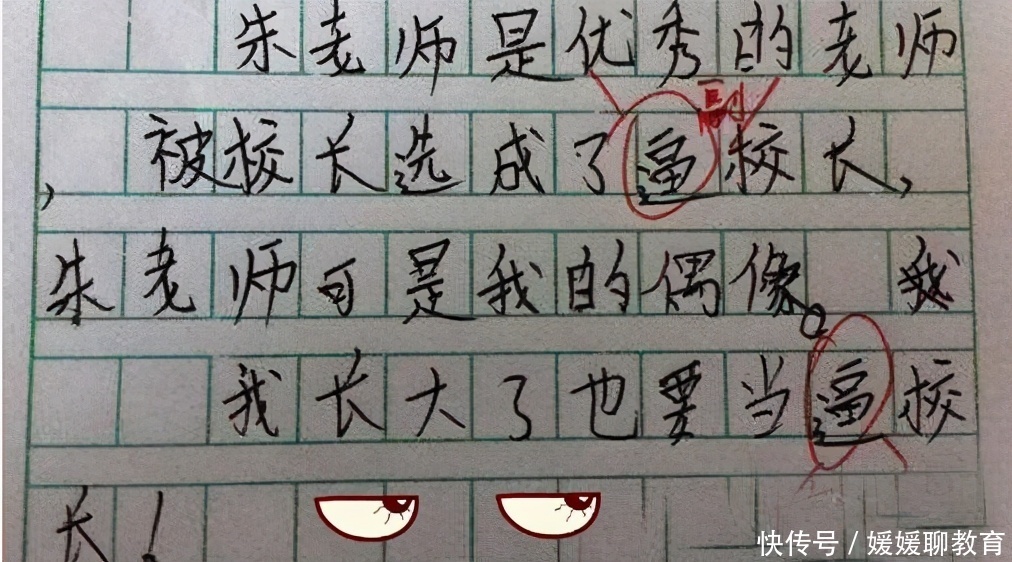 朱老师是优秀的老师
副
,被校长选成了逼校长,
朱老师可是我的偶像。我
我长大了也要当逼校
长!
快传号/媛媛聊教育